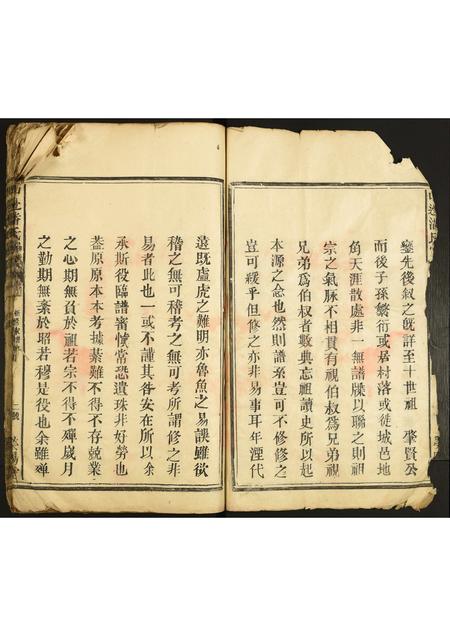 鑒先後叙之旣詳至十世祖　肇賢公
而後子孫繁衍或居村落或徙城邑地
角天涯散處非一無譜牒以聯之則祖
宗之氣脉不相貫有視伯叔爲兄弟視
兄弟爲伯叔者數典忘祖讀史所以起
本源之念也然則譜系豈可不修修之
豈可緩乎但修之亦非易事耳年湮代
遠既虛虎之難明亦魯魚之易誤雖欲
稽之無可稽考之無可考所謂修之非
易者此也一或不謹其咎安在所以余
承斯役臨譜審愼常恐遺珠非好勞也
葢原原本本考據綦難不得不存兢業
之心期無負於祖若宗不得不殫歲月
之勤期無紊於昭若穆是役也余雖殫